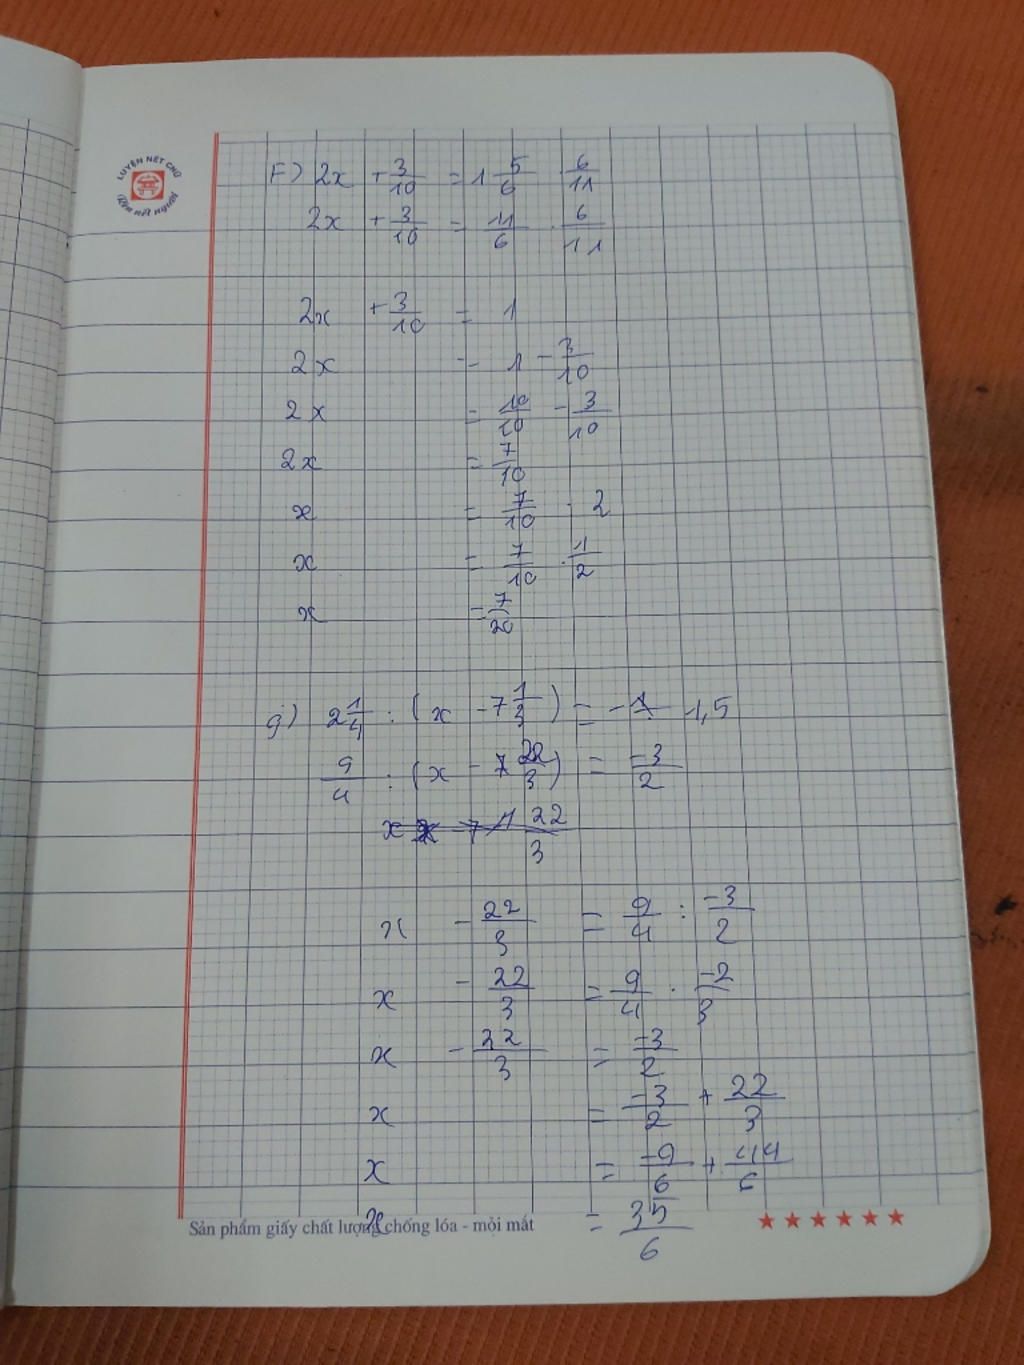 LUYỆN NÉT CHỮ
Rèn nết người
F) 2x + 3/10 = 1 5/6 · 6/11
2x + 3/10 = 11/6 · 6/11
2x + 3/10 = 1
2x = 1 - 3/10
2x = 10/10 - 3/10
2x = 7/10
x = 7/10 : 2
x = 7/10 · 1/2
x = 7/20
g) 2 1/4 : (x - 7 1/3) = - 1,5
9/4 : (x - 22/3) = -3/2
x - 22/3 = 9/4 : -3/2
x - 22/3 = 9/4 · -2/3
x - 22/3 = -3/2
x = -3/2 + 22/3
x = -9/6 + 44/6
x = 35/6
Sản phẩm giấy chất lượng chống lóa - mỏi mắt